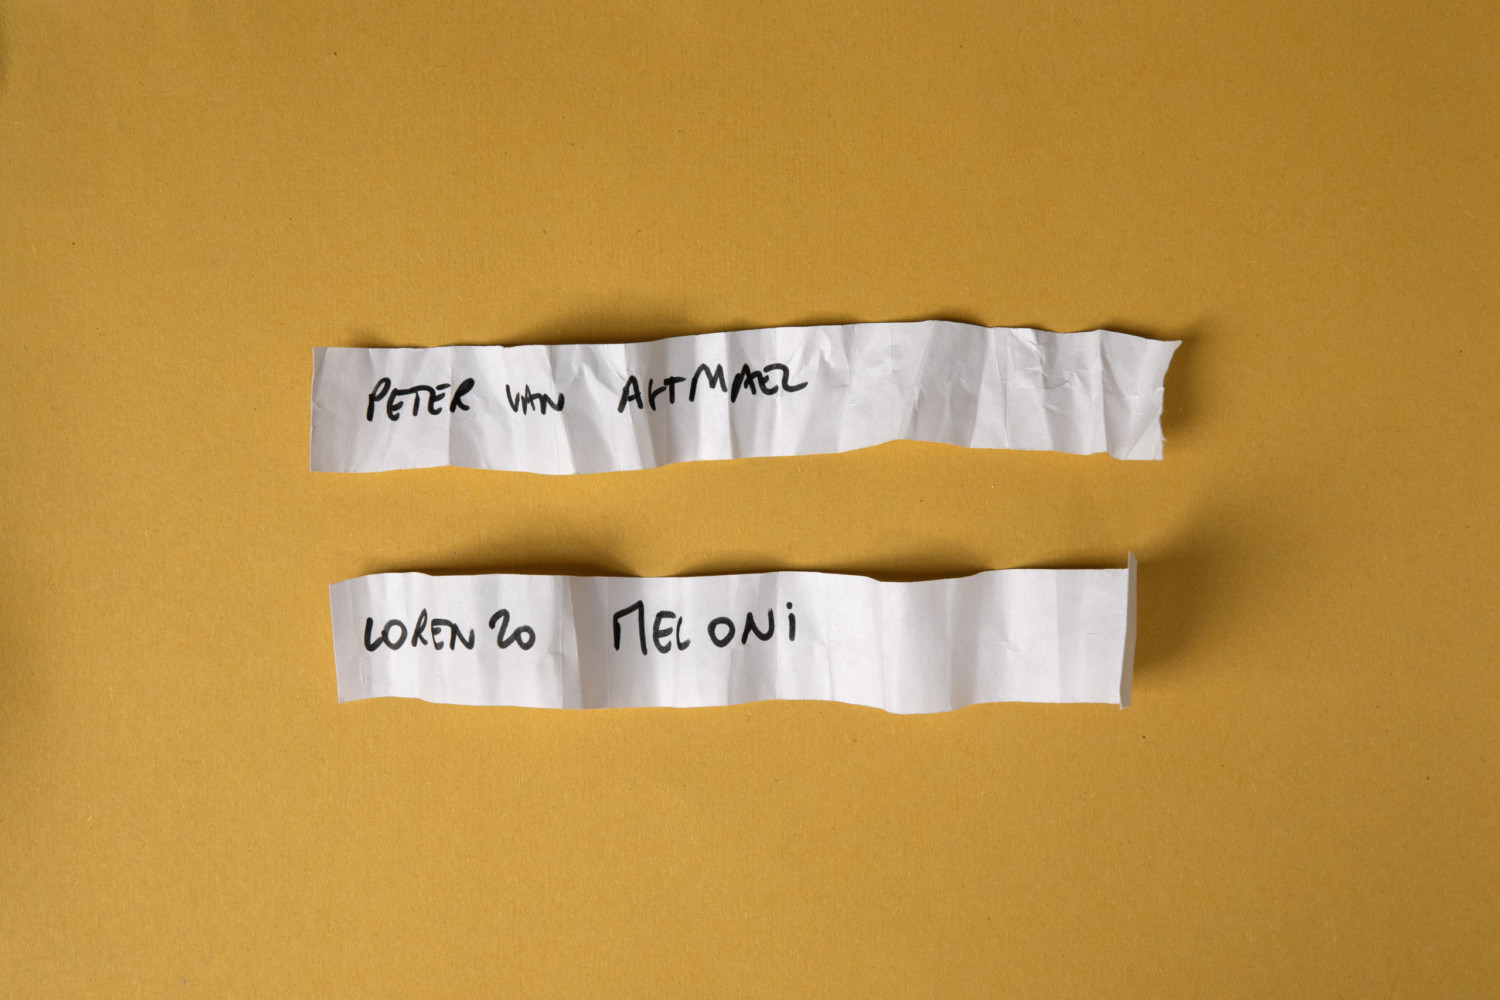 PETER VAN AGTMAEL
LORENZO MELONi